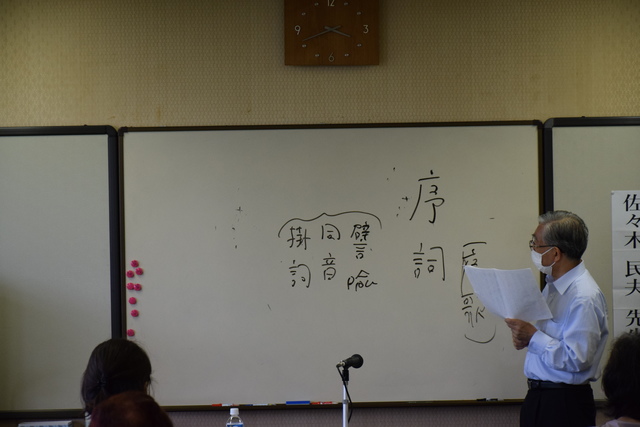 佐々木民夫先
序詞
譬喩
同音
掛詞
12
3
6
9